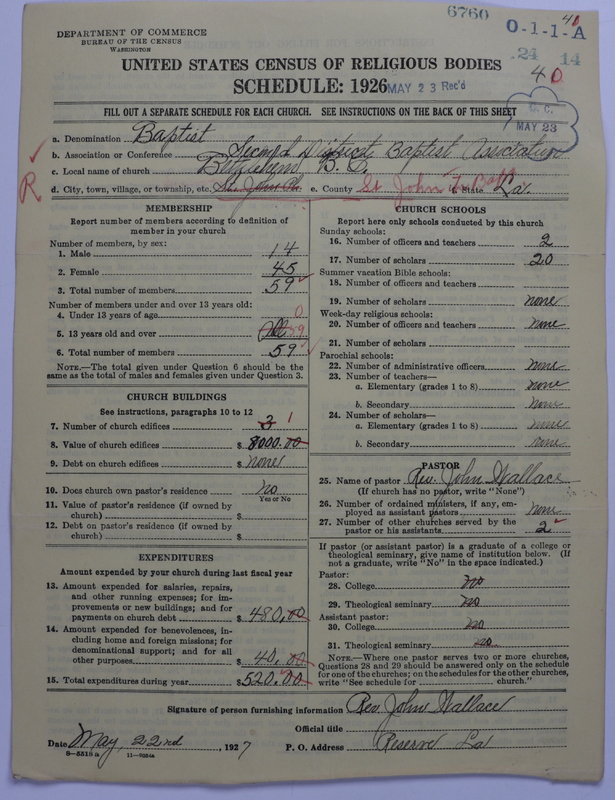 6760
DEPARTMENT OF COMMERCE
BUREAU OF THE CENSUS
WASHINGTON
40
0-1-1-A
.24 14
40
UNITED STATES CENSUS OF RELIGIOUS BODIES
SCHEDULE: 1926
MAY 23 Rec'd
FILL OUT A SEPARATE SCHEDULE FOR EACH CHURCH. SEE INSTRUCTIONS ON THE BACK OF THIS SHEET
MAY 23
a. Denomination Baptist
b. Association or Conference Second District Baptist Association
c. Local name of church B. C.
R
d. City, town, village, or township, etc. e. County St John T. Bapt State La.
MEMBERSHIP
Report number of members according to definition of
member in your church
Number of members, by sex:
1. Male 14
2. Female 45
3. Total number of members 59
Number of members under and over 13 years old:
4. Under 13 years of age 0
5. 13 years old and over All 59
6. Total number of members 59
NOTE.—The total given under Question 6 should be the
same as the total of males and females given under Question 3.
CHURCH BUILDINGS
See instructions, paragraphs 10 to 12
7. Number of church edifices 3 1
8. Value of church edifices $ 8000.00
9. Debt on church edifices $ None
10. Does church own pastor's residence No
Yes or No
11. Value of pastor's residence (if owned by
church) $
12. Debt on pastor's residence (if owned by
church) $
EXPENDITURES
Amount expended by your church during last fiscal year
13. Amount expended for salaries, repairs,
and other running expenses; for im-
provements or new buildings; and for
payments on church debt $ 480.00
14. Amount expended for benevolences, in-
cluding home and foreign missions; for
denominational support; and for all
other purposes $ 40.00
15. Total expenditures during year $ 520.00
CHURCH SCHOOLS
Report here only schools conducted by this church
Sunday schools:
16. Number of officers and teachers 2
17. Number of scholars 20
Summer vacation Bible schools:
18. Number of officers and teachers
19. Number of scholars none
Week-day religious schools:
20. Number of officers and teachers none
21. Number of scholars
Parochial schools:
22. Number of administrative officers none
23. Number of teachers—
a. Elementary (grades 1 to 8) none
b. Secondary none
24. Number of scholars—
a. Elementary (grades 1 to 8) none
b. Secondary none
PASTOR
25. Name of pastor Rev. John Wallace
(If church has no pastor, write "None")
26. Number of ordained ministers, if any, em-
ployed as assistant pastors none
27. Number of other churches served by the
pastor or his assistants 2
If pastor (or assistant pastor) is a graduate of a college or
theological seminary, give name of institution below. (If
not a graduate, write "No" in the space indicated.)
Pastor:
28. College no
29. Theological seminary no
Assistant pastor:
30. College no
31. Theological seminary no
NOTE.—Where one pastor serves two or more churches,
Questions 28 and 29 should be answered only on the schedule
for one of the churches; on the schedules for the other churches,
write "See schedule for church."
Signature of person furnishing information Rev. John Wallace
Official title
Date May, 22nd, 1927 P. O. Address Reserve La
8—5518a 11—9084a